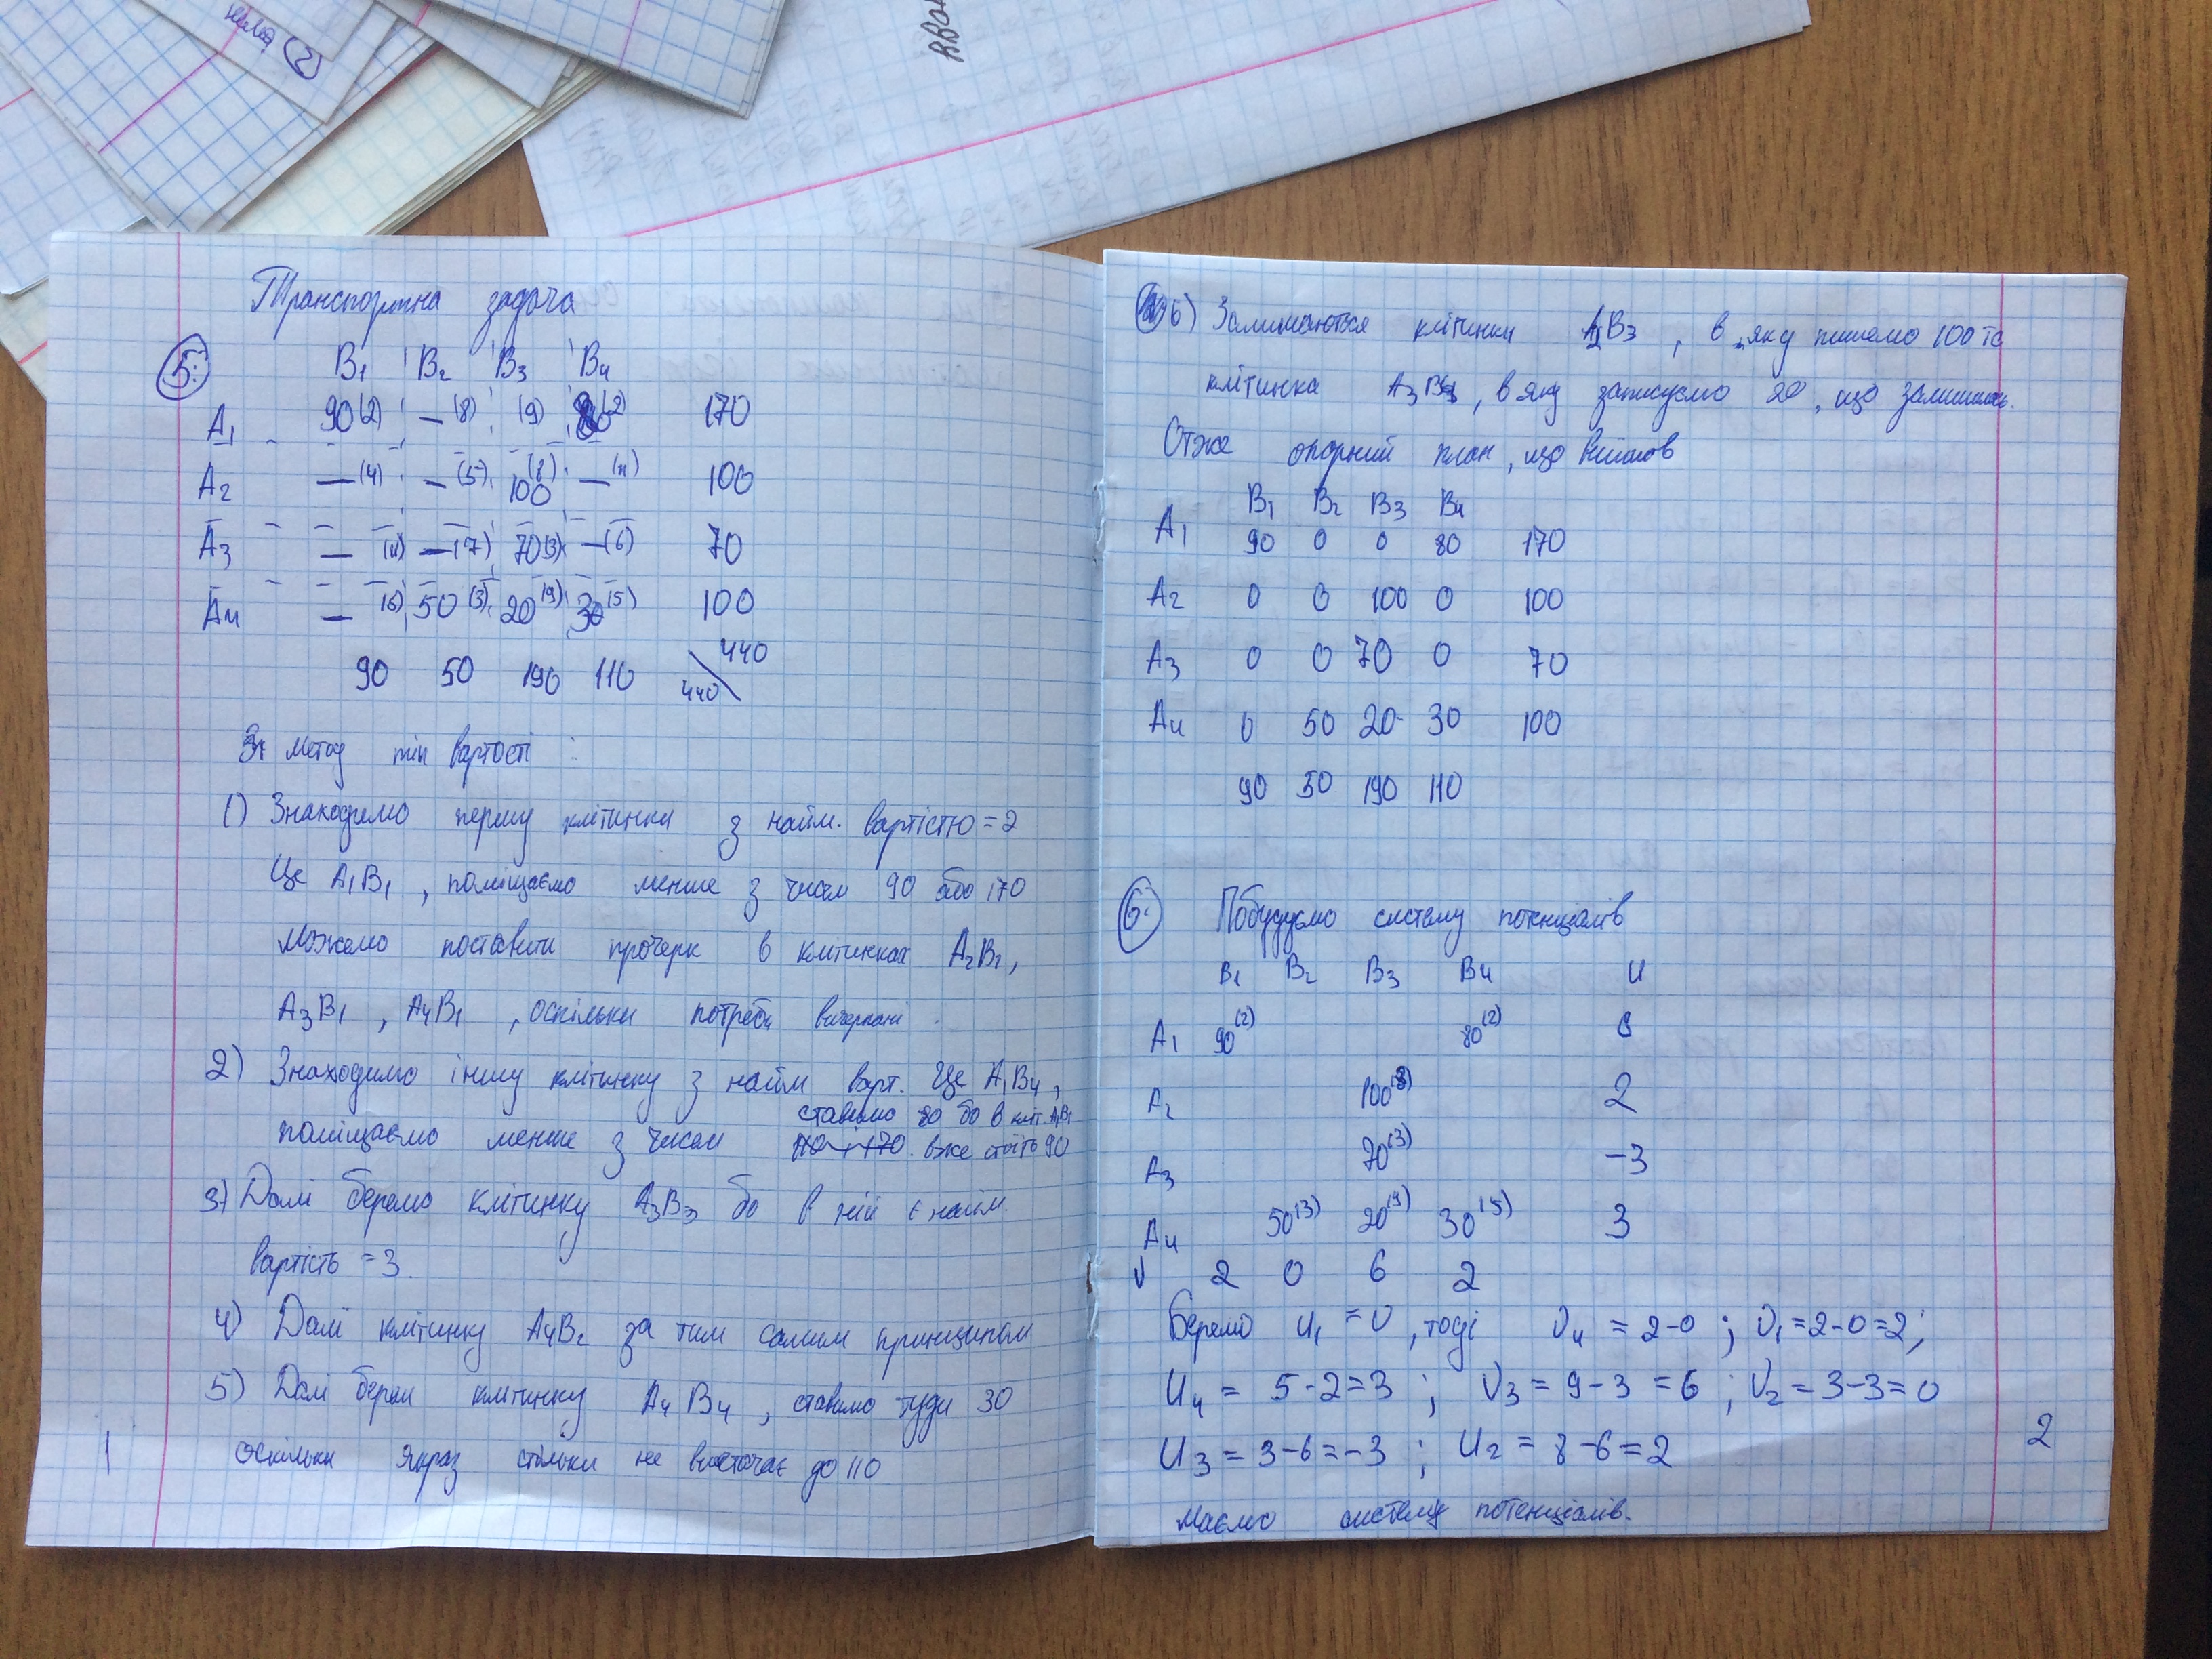 Транспортна задача
5.
B1 B2 B3 B4
A1 90(2) –(8) (9) 80(2) 170
A2 –(4) –(5) 100(8) –(11) 100
A3 –(11) –(7) 70(3) –(6) 70
A4 –(6) 50(3) 20(9) 30(5) 100
90 50 190 110 440 \ 440
метод min вартості :
1) Знаходимо першу клітинку з найм. вартістю = 2
Це A1B1 , поміщаємо менше з чисел 90 або 170
Можемо поставити прочерк в клітинках A2B1,
A3B1 , A4B1 , оскільки потреби вичерпані .
2) Знаходимо іншу клітинку з найм варт. Це A1B4 ,
ставимо 80 бо в кліт. A1B1
поміщаємо менше з чисел вже стоїть 90
3) Далі беремо клітинку A3B3 бо в ній є найм.
вартість = 3.
4) Далі клітинку A4B2 за тим самим принципом
5) Далі берем клітинку A4B4 , ставимо туди 30
оскільки якраз стільки не вистачає до 110
1
6) Залишаються клітинки A2B3 , в яку пишемо 100 та
клітинка , в яку записуємо 20 , що залишилось.
Отже опорний план , що
B1 B2 B3 B4
A1 90 0 0 80 170
A2 0 0 100 0 100
A3 0 0 70 0 70
A4 0 50 20 30 100
90 50 190 110
6. Побудуємо систему потенціалів
B1 B2 B3 B4 U
A1 90(2) 80(2) 0
A2 100(8) 2
A3 70(3) -3
A4 50(3) 20(9) 30(5) 3
V 2 0 6 2
Беремо U1 = 0 , тоді V4 = 2-0 ; V1 = 2-0 = 2 ;
U4 = 5-2=3 ; V3 = 9-3 = 6 ; V2 = 3-3=0
U3 = 3-6=-3 ; U2 = 8-6=2
2
Маємо систему потенціалів.